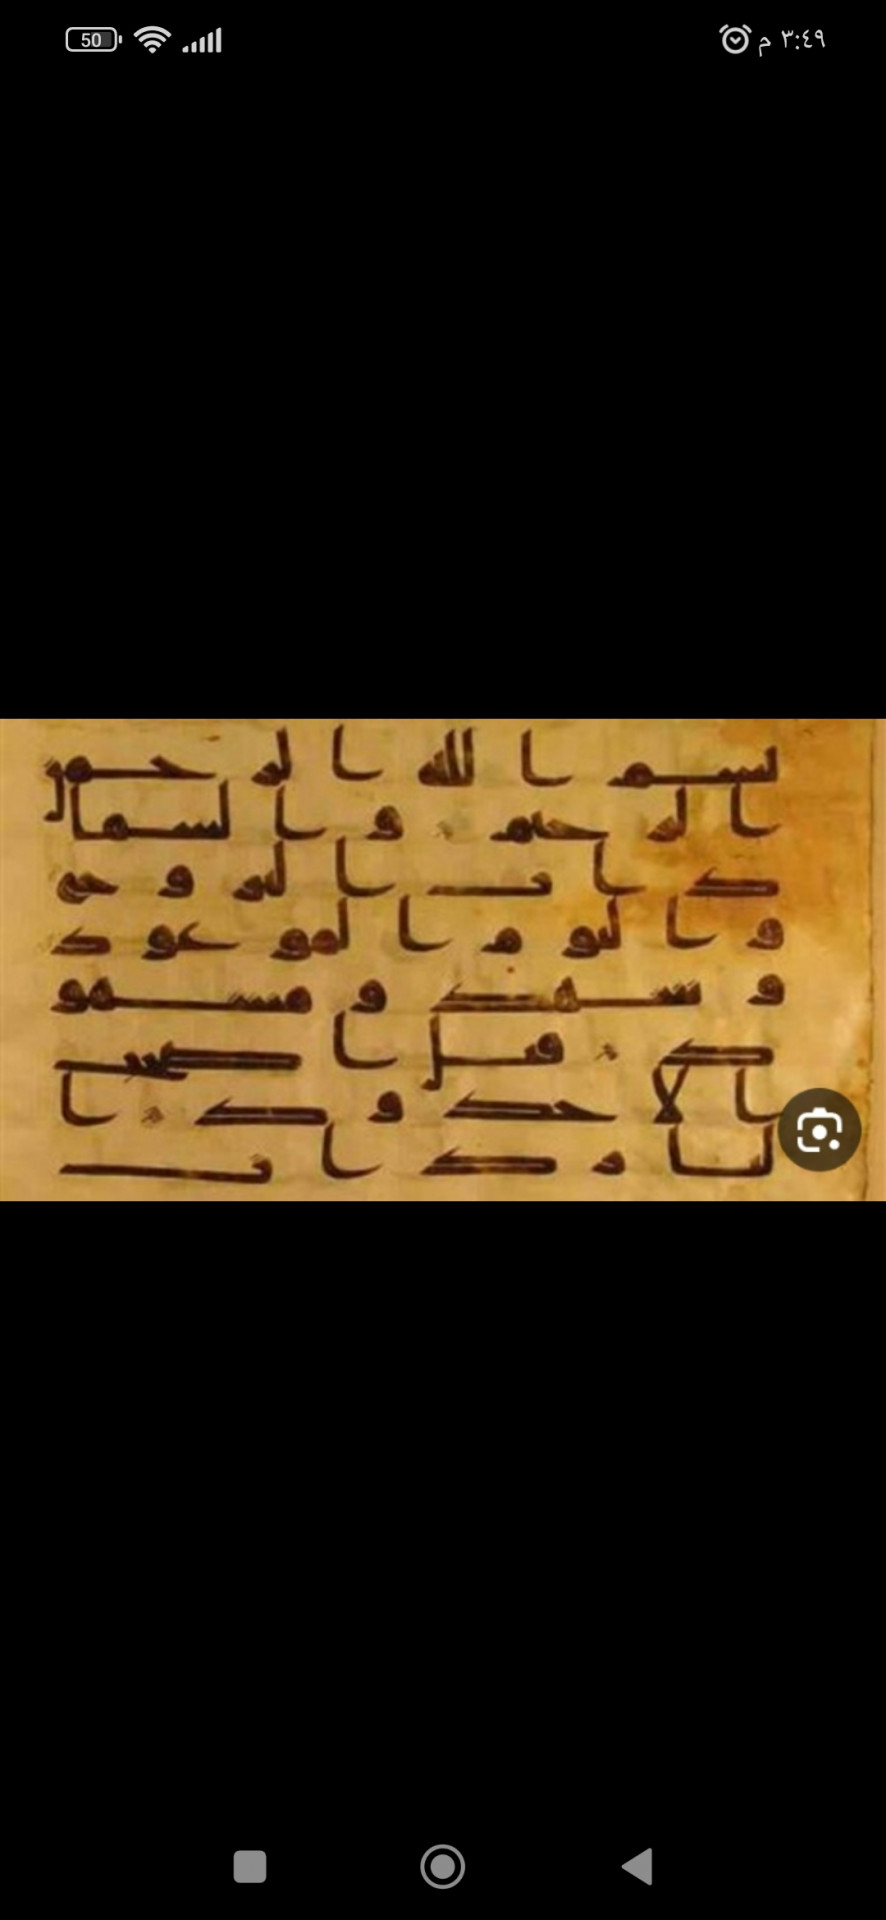 50 ٣:٤٩ م
بسم الله الرحمن
الرحيم والسما
ذات البروج
واليوم الموعود
وشهد ومشهو
د قتل اصحب
الاخدود ا
لنار ذات